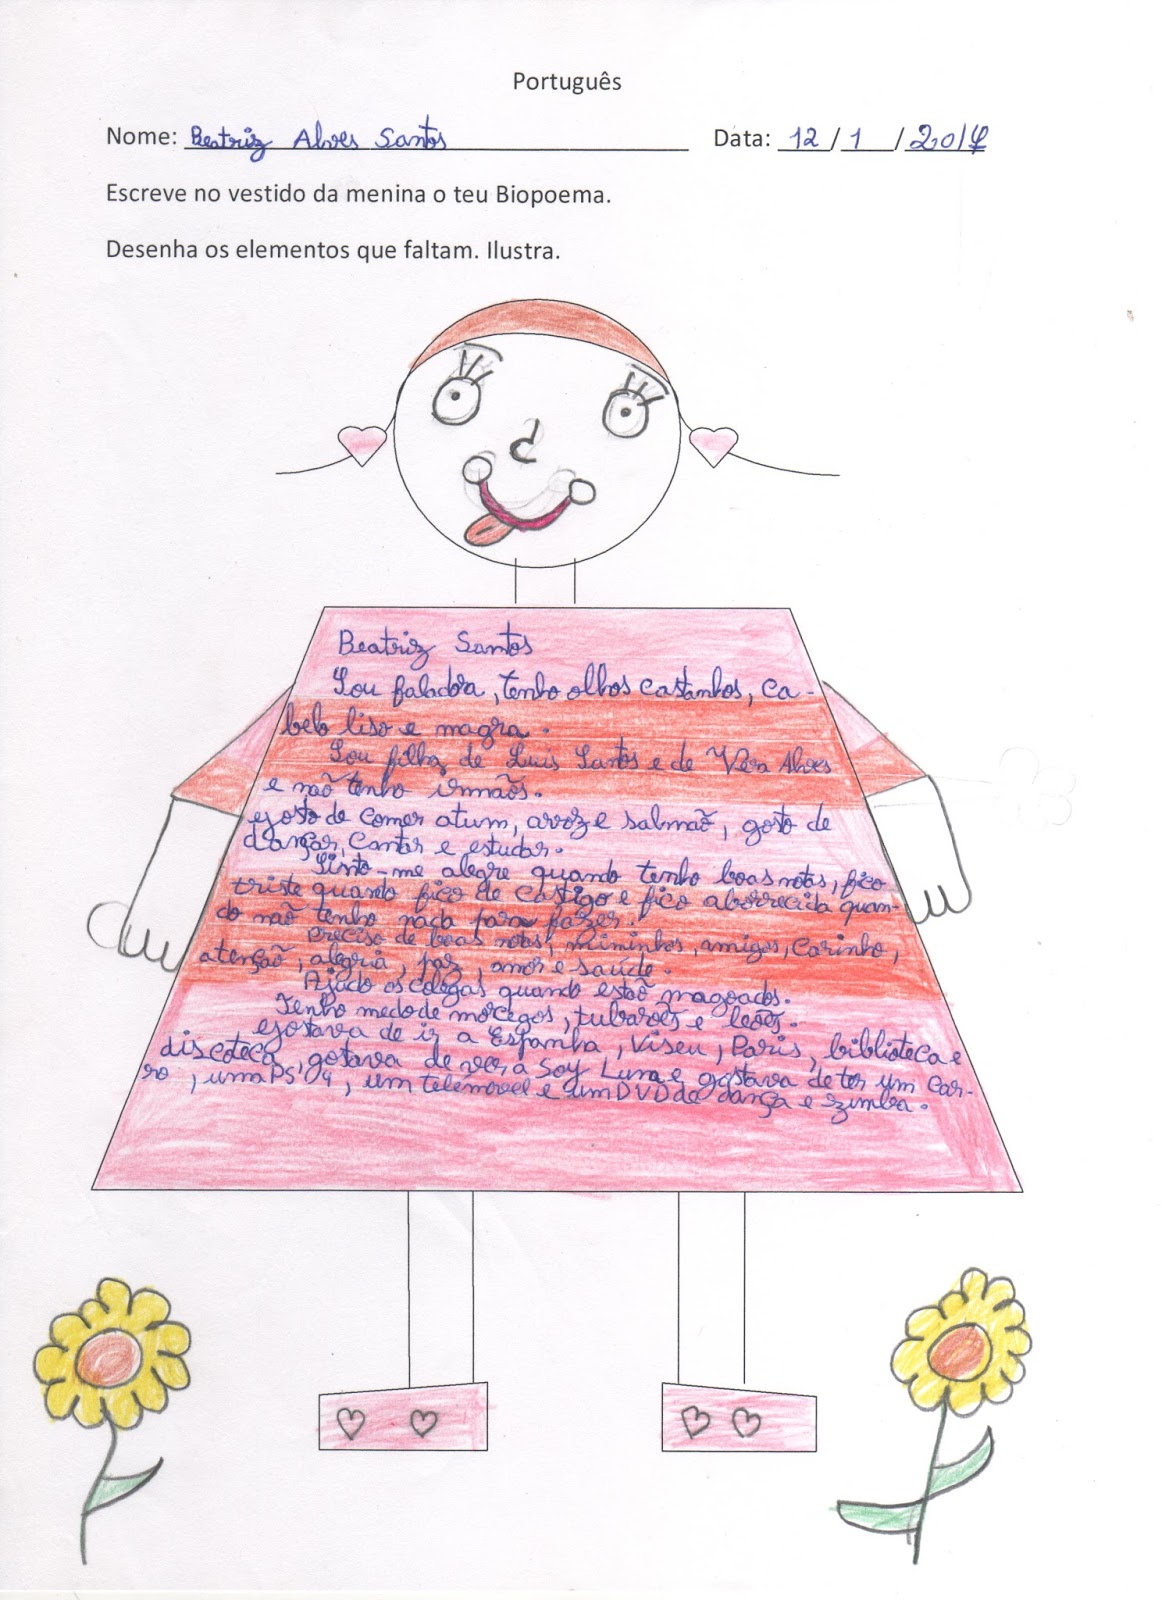 Português
Nome: Beatriz Alves Santos Data: 12/1/2017
Escreve no vestido da menina o teu Biopoema.
Desenha os elementos que faltam. Ilustra.
Beatriz Santos
Sou faladora, tenho olhos castanhos, ca-
belo liso e magra.
Sou filha de Luis Santos e de Vera Alves
e não tenho irmãos.
gosto de comer atum, arroz e salmão, gosto de
dançar, cantar e estudar.
Sinto-me alegre quando tenho boas notas, fico
triste quando fico de castigo e fico aborrecida quan-
do não tenho nada para fazer.
Preciso de boas notas, miminhos, amigos, carinho,
atenção, alegria, paz, amor e saúde.
Ajudo os colegas quando estão magoados.
Tenho medo de morcegos, tubarões e leões.
gostava de ir a Espanha, Viseu, Paris, biblioteca e
discoteca, gostava de ver a Soy Luna e gostava de ter um car-
ro, uma PS'4, um telemóvel e um DVD de dança e zimba.